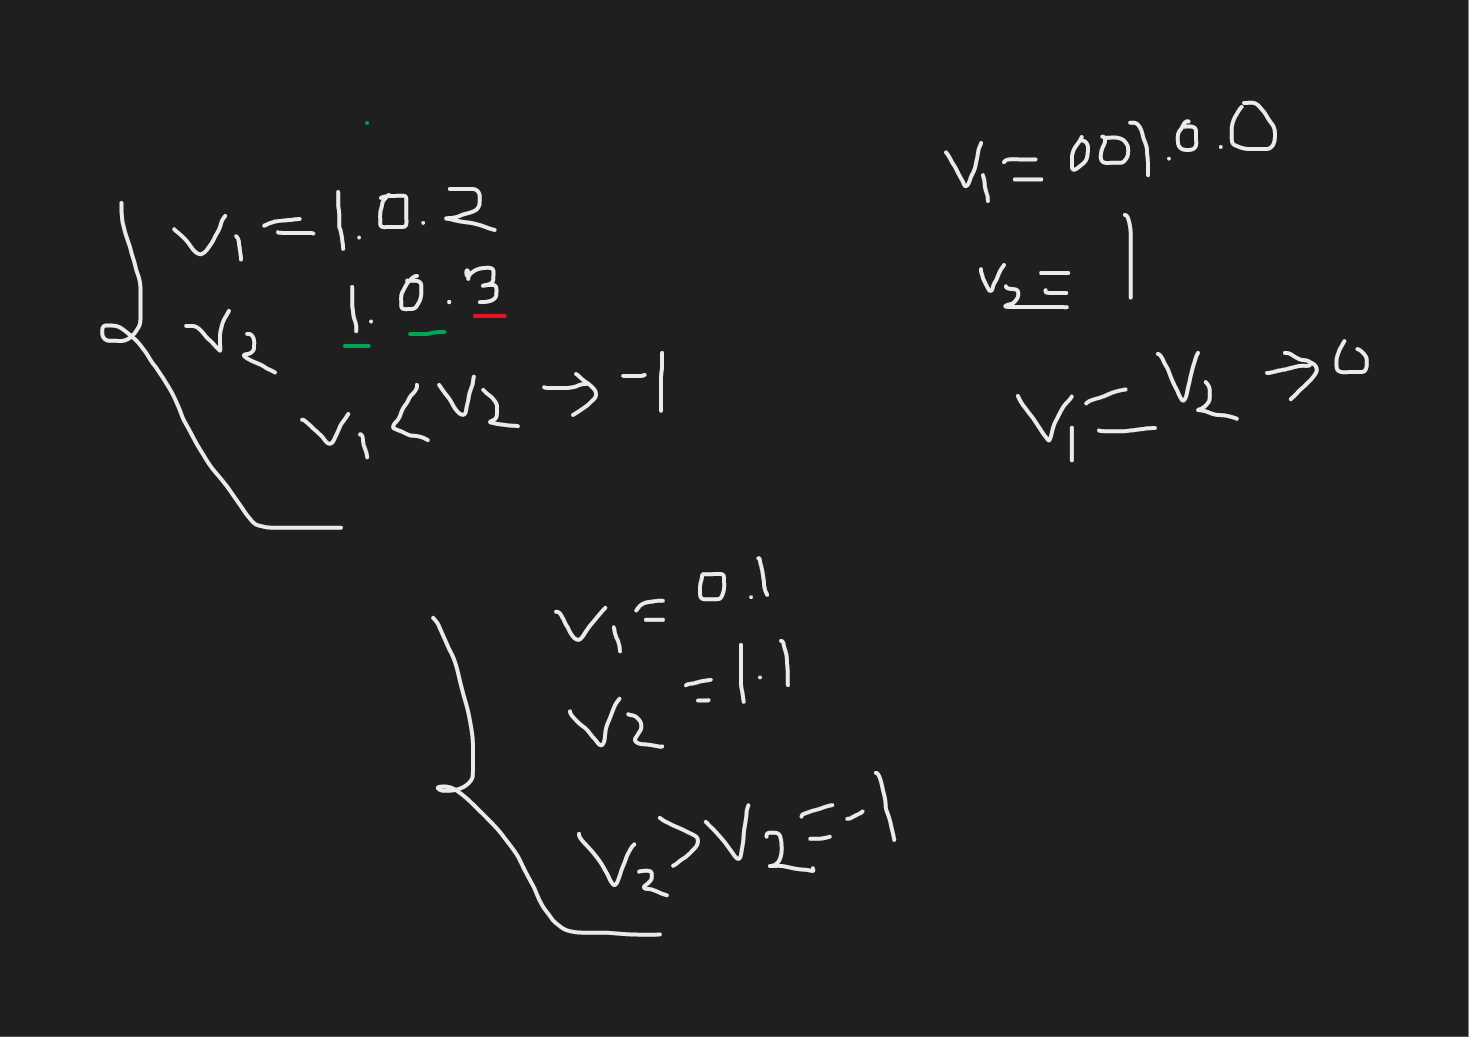 v1 = 1.0.2
v2 1.0.3
v1 < v2 → -1
v1 = 001.0.0
v2 = 1
v1 = v2 → 0
v1 = 0.1
v2 = 1.1
v2 > v2 = -1